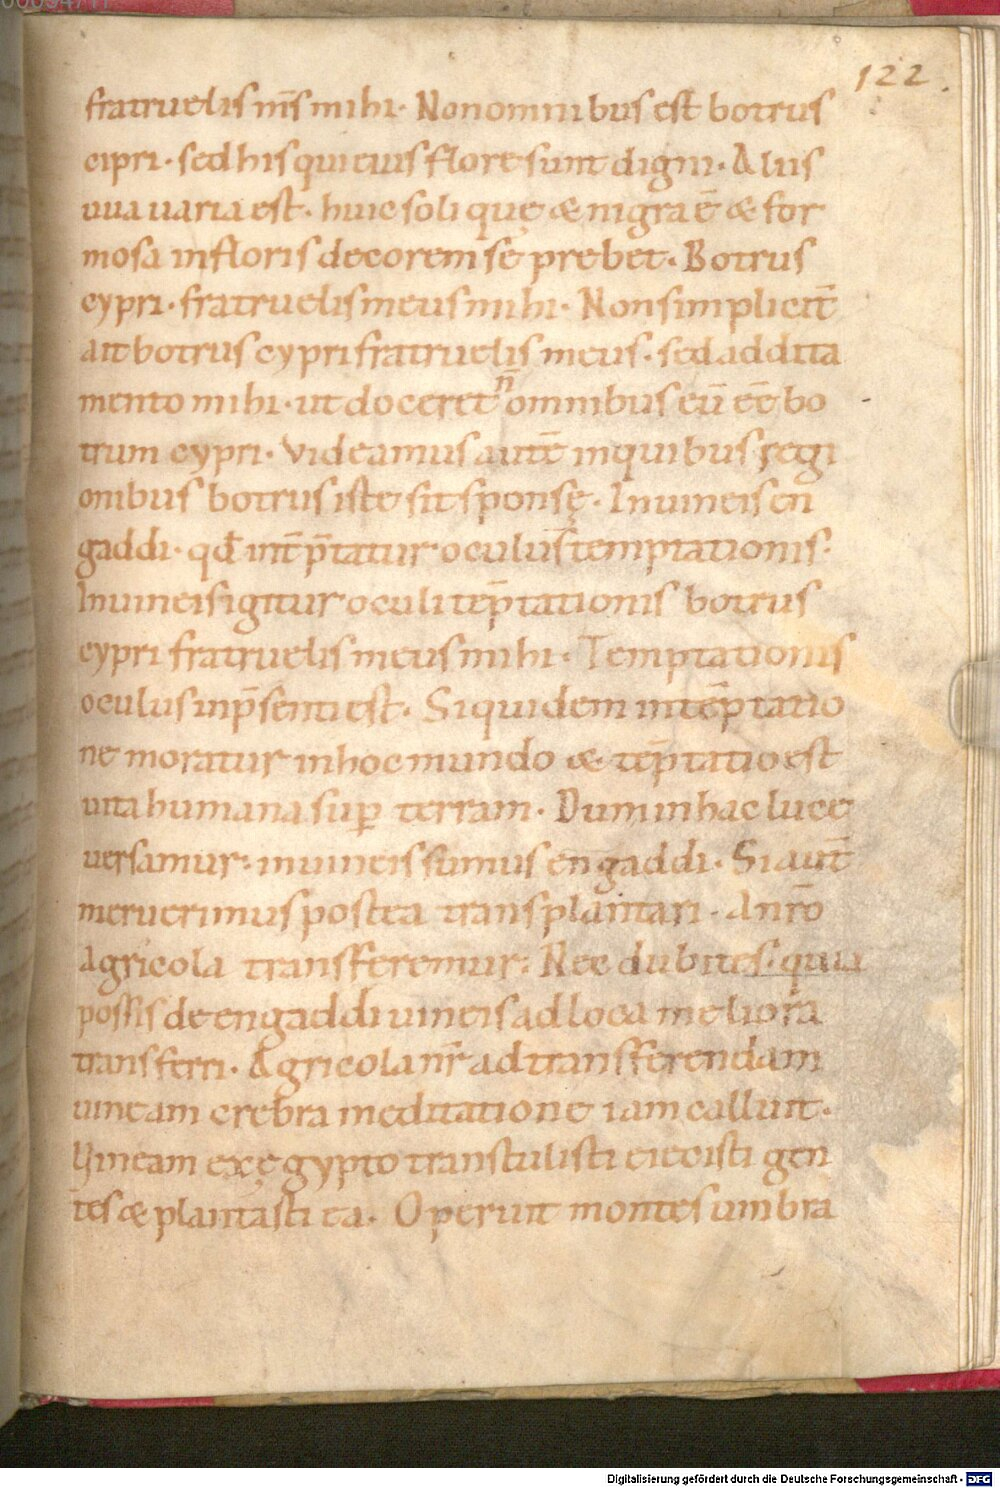 122.
fratruelis m̅s mihi. Non omnibus est botrus
cipri. sed his qui eius flore sunt digni. Aliis
uua uaria est. huic soli quę & nigra ē & for
mosa in floris decorem se prebet. Botrus
cypri. fratruelis meus mihi. Non simplicit̅
ait botrus cypri fratruelis meus. sed addita
mento mihi. ut doceret n̅ omnibus eū eē bo
trum cypri. Videamus autē in quibus regi
onibus botrus iste sit sponsę. In uineis en
gaddi. qd̅ int̅p̅tatur oculus temptationis.
In uineis igitur oculi tēptationis botrus
cypri fratruelis meus mihi. Temptationis
oculus in p̅senti est. Siquidem in tēptatio
ne moratur in hoc mundo & tēptatio est
uita humana sup̱ terram. Dum in hac luce
uersamur: in uineis sumus engaddi. Si aut̅
meruerimus postea transplantari. A nr̅o
Agricola transferemur: Nec dubites. quia
possis de engaddi uineis ad loca meliora
transferri. Agricola nr̅ ad transferendam
uineam crebra meditatione iam calluit.
Vineam ex ęgypto transtulisti eiecisti gen
tes & plantasti ea. Operuit montes umbra
Digitalisierung gefördert durch die Deutsche Forschungsgemeinschaft - DFG